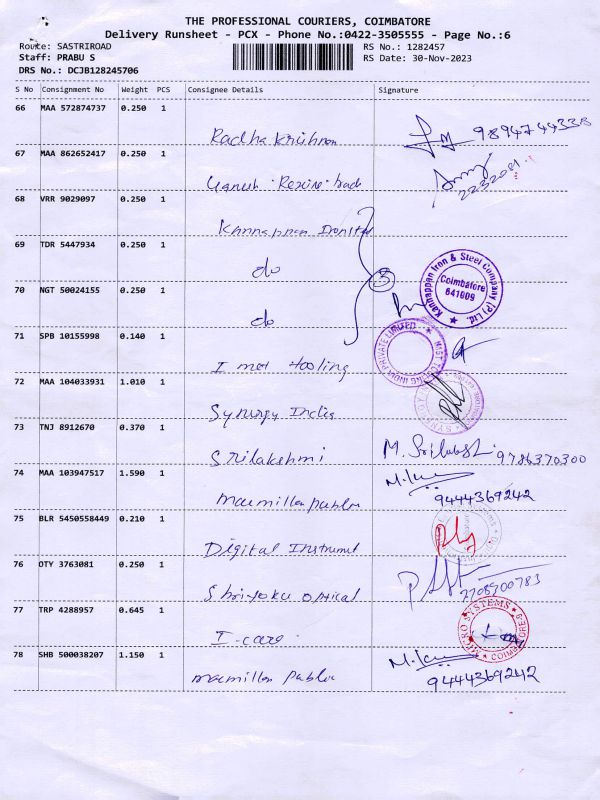 THE PROFESSIONAL COURIERS, COIMBATORE
Delivery Runsheet - PCX - Phone No.:0422-3505555 - Page No.:6
Route: SASTRIROAD RS No.: 1282457
Staff: PRABU S RS Date: 30-Nov-2023
DRS No.: DCJB128245706
S No Consignment No Weight PCS Consignee Details Signature
66 MAA 572874737 0.250 1
Radha Krishnan 9894744338
67 MAA 862652417 0.250 1
68 VRR 9029097 0.250 1
Kannappan
69 TDR 5447934 0.250 1
do
3
Kannappan Iron & Steel Company (P) Ltd.
Coimbatore
641009
70 NGT 50024155 0.250 1
do
71 SPB 10155998 0.140 1
TOOLING INDIA PRIVATE LIMITED
I met tooling
72 MAA 104033931 1.010 1
Synergy India
SYNERGY
73 TNJ 8912670 0.370 1
Srilakshmi M. 9786370300
74 MAA 103947517 1.590 1
Macmillan Public 9444369242
75 BLR 5450558449 0.210 1
Digital Instrumt
76 OTY 3763081 0.250 1
Optical 2708900783
77 TRP 4288957 0.645 1
MICRO SYSTEMS
COIMBATORE
I-care
78 SHB 500038207 1.150 1
macmillan Public 9444369242